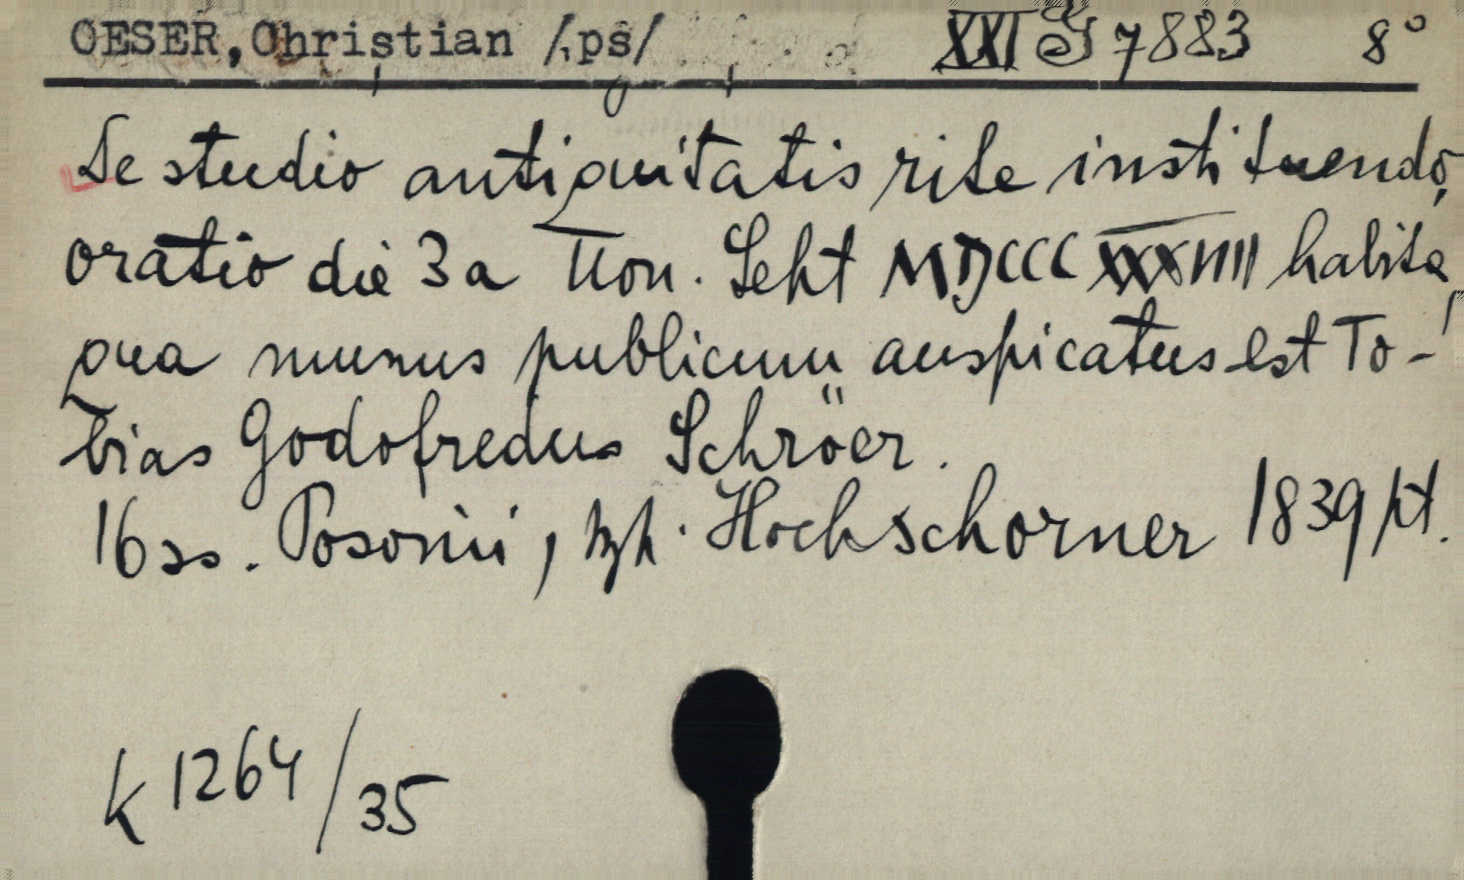 OESER, Christian /ps/ XXI G 7883 8°
De studio antiquitatis rite instituendo,
oratio die 3a Non. Sept MDCCCXXXVIIII habita
qua munus publicum auspicatus est To-
bias Godofredus Schröer.
16 ss. Posonii, tyh. Hochschorner 1839
K 1264/35